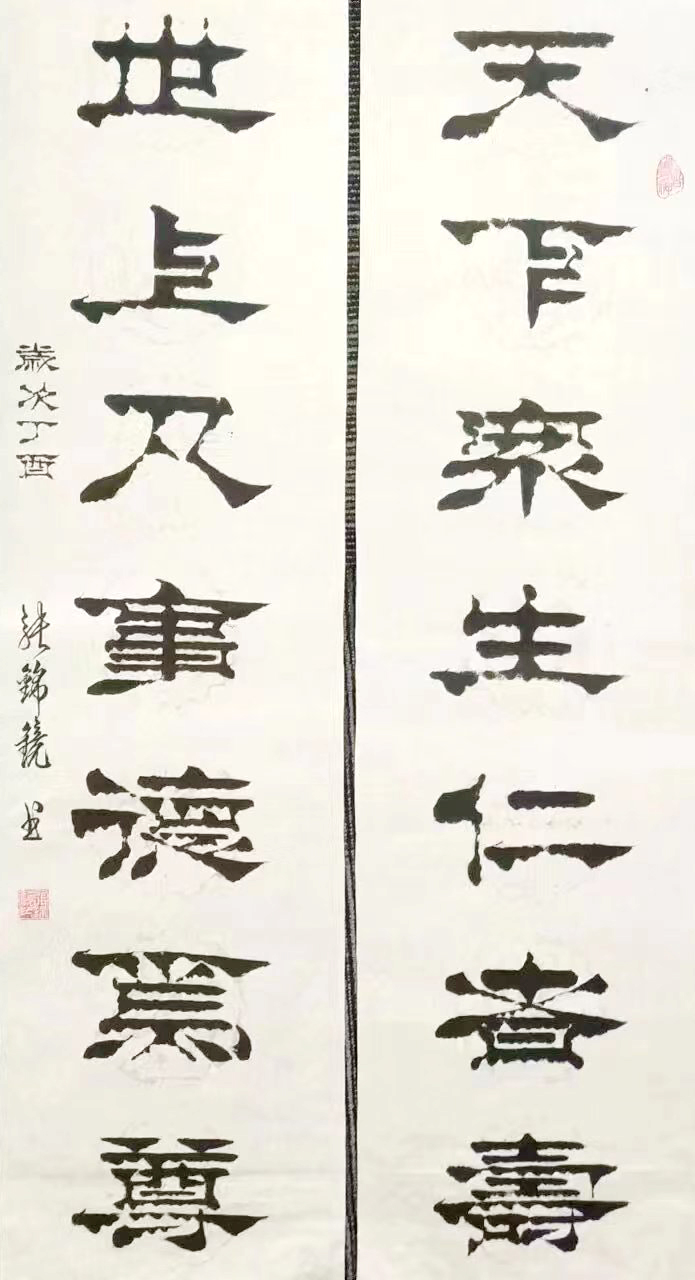 天下眾生仁者壽
世上凡事德為尊
歲次丁酉
張錦鏡書